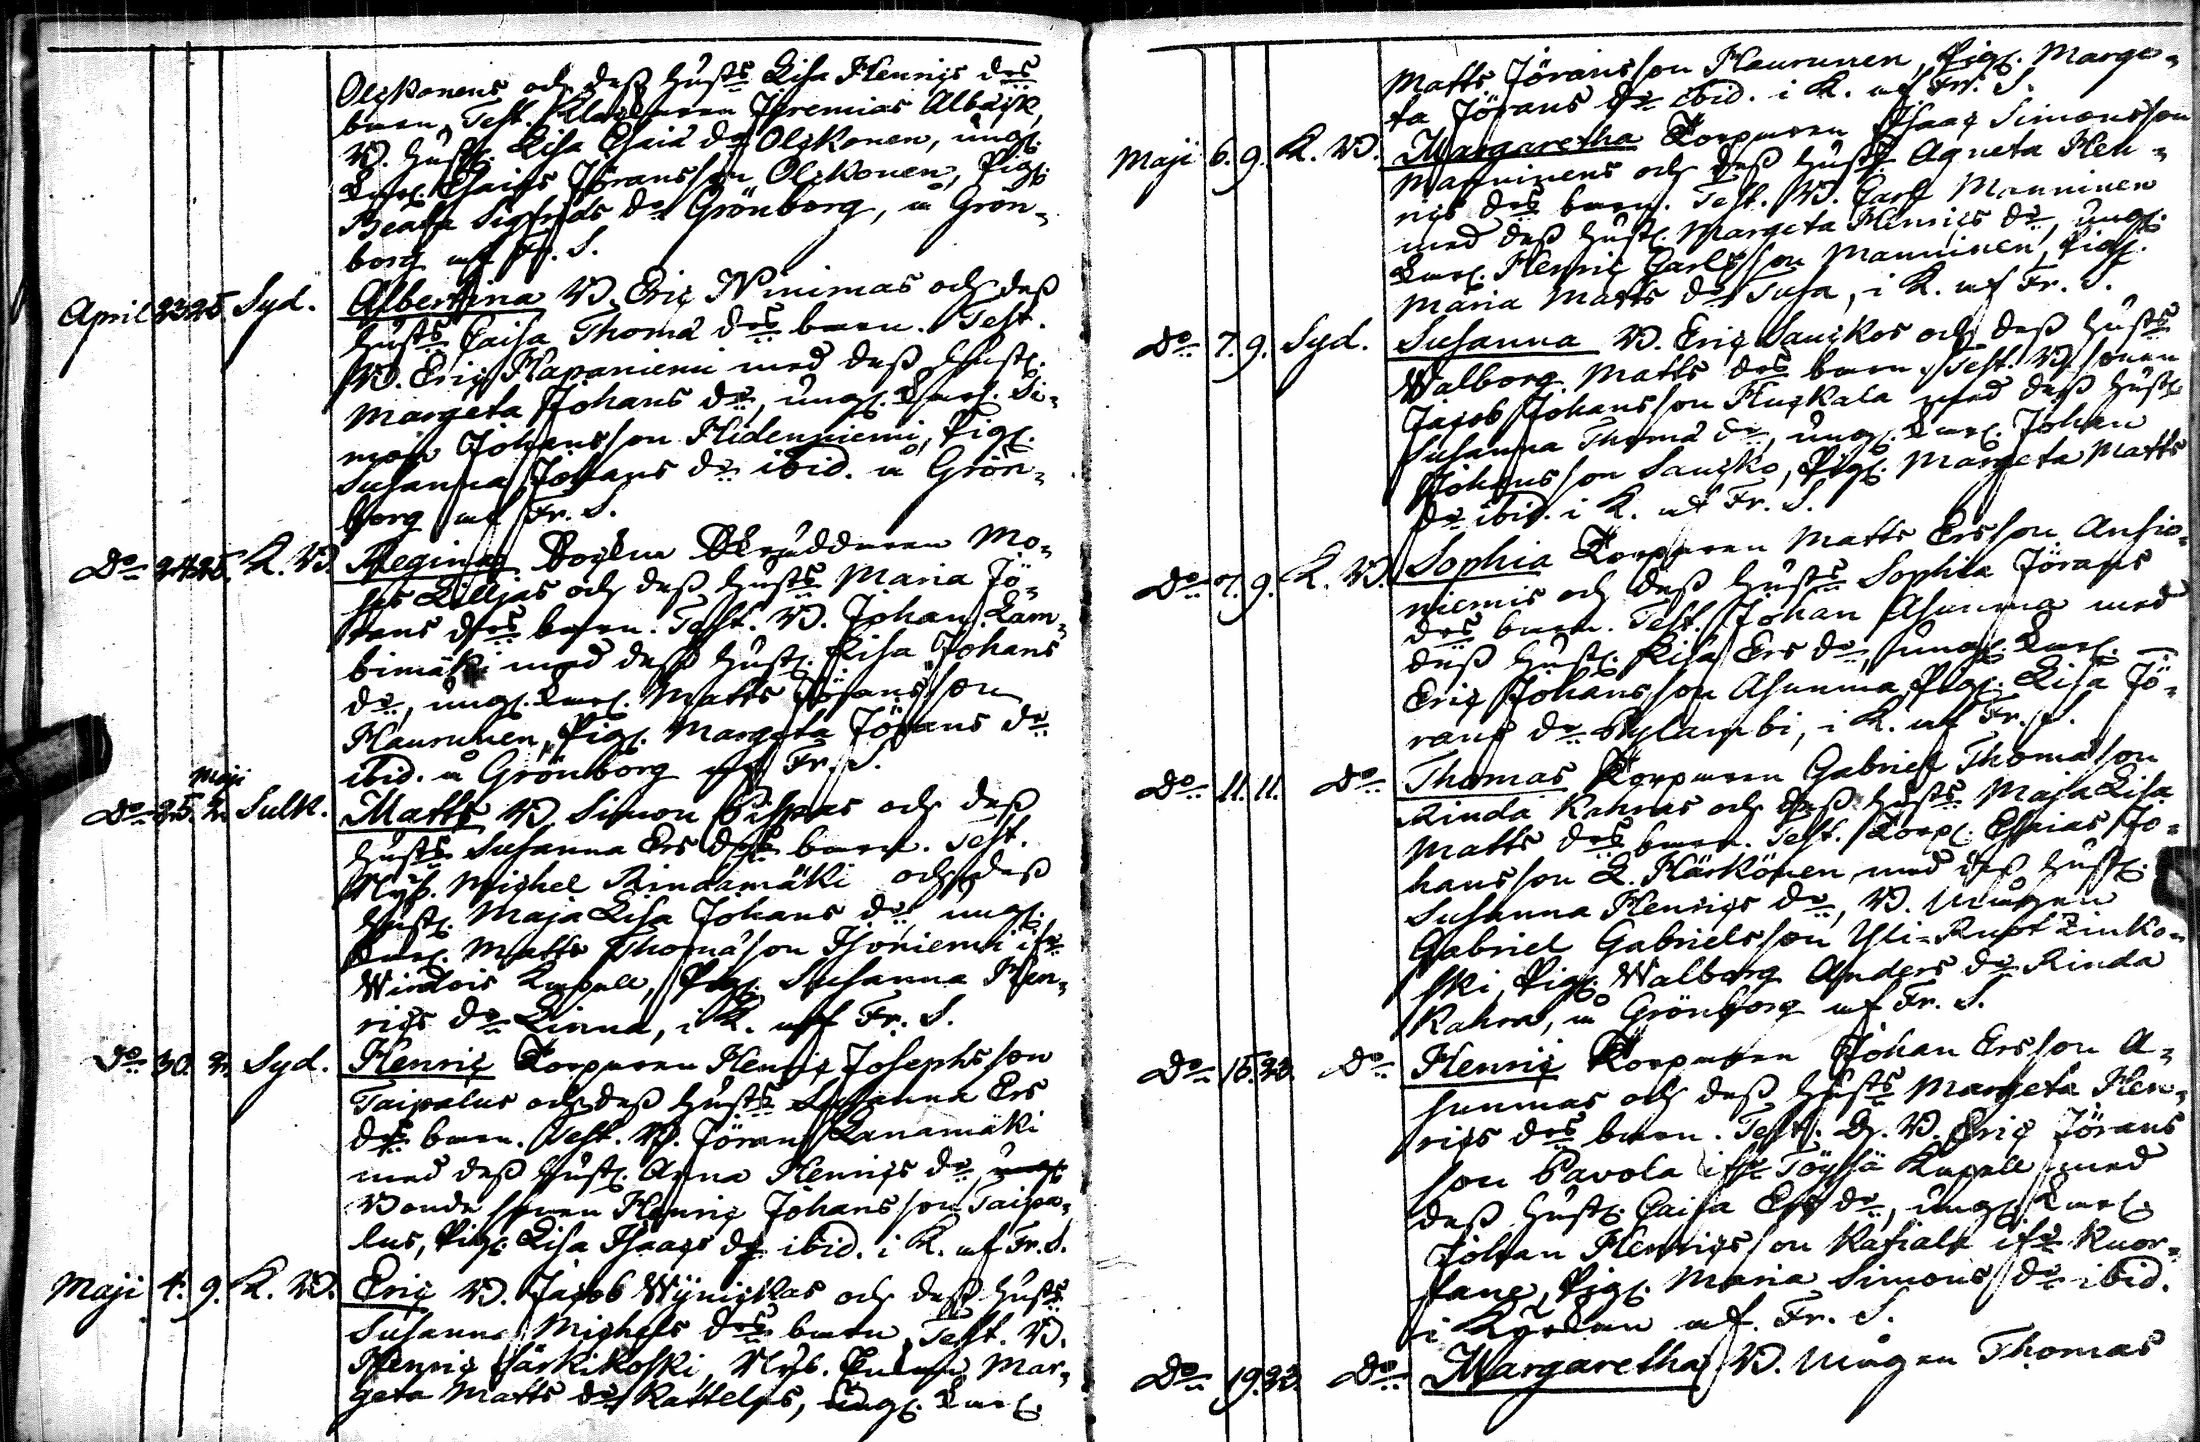 Olckonens och dess hust:s Lisa Henrics dr:s
barn, Test. Jeremias Albäck,
B. hust. Lisa Esaiæ dr Olckonen, ung.
Karl. Esaias Jöransson Olckonen, Pig.
Beata Sigfrids dr Grönborg, å Grön-
borg af Fr. S.
April 23 25. Syd. Albertina B. Eric Ninimas och dess
hust:s Caisa Thomæ dr:s barn. Test.
B. Eric Hapaniemi med dess Hust.
Margeta Johans dr, ung. Karl. Si-
mon Johansson Hidenniemi, Pig.
Susanna Johans dr ibid. å Grön-
borg af Fr. S.
Do 24 25. K. B. Regina Socken Skräddaren Mo-
ses Liljas och dess hust:s Maria Jö-
rans dr:s barn. Test. B. Johan Lam-
bimäki med dess hust. Lisa Johans
dr, ung. Karl. Matts Jöransson
Haurunen, Pig. Margeta Jörans dr
ibid. å Grönborg af Fr. S.
Maji
Do 25. 2. Sulk. Matts B. Simon Pispas och dess
hust:s Susanna Ers dr:s barn. Test.
Nyb. Michel Rindamäki och dess
Hust. Maja Lisa Johans dr, ung.
Karl. Matts Thomæson Isoniemi ifr
Windois Kapell, Pig. Susanna Hen-
rics dr Linna, i K. af Fr. S.
Do 30. 2. Syd. Henric Torparen Henric Josephsson
Taipalus och dess hust:s Susanna Ers
dr:s barn. Test. B. Jöran Ranamäki
med dess Hust. Anna Henrics dr, ung.
Bonde sonen Henric Johansson Taipa-
lus, Pig. Lisa Isaacs dr ibid. i K. af Fr. S.
Maji 4. 9. K. B. Eric B. Jacob Wynickas och dess hust:s
Susanna Michels dr:s barn, Test. B.
Henric Särkikoski, Nyb. Enkan Mar-
geta Matts dr Kattelus, ung. Karl.
Matts Jöransson Haurunen, Pig. Marge-
ta Jörans dr ibid. i K. af Fr. S.
Maji 6. 9. K. B. Margaretha Torparen Isaac Simonsson
Manninens och dess hust:s Agneta Hen-
rics dr:s barn. Test. B. Carl Manninen
med dess hust. Margeta Henrics dr, ung.
Karl. Henric Carlsson Manninen, Pig.
Maria Matts dr Tusa, i K. af Fr. S.
Do 7. 9. Syd. Susanna B. Eric Sauckos och dess hust:s
Walborg Matts dr:s barn. Test. B. sonen
Jacob Johansson Huckala med dess hust.
Susanna Thomæ dr, ung. Karl. Johan
Johansson Saucko, Pig. Margeta Matts
dr ibid. i K. af Fr. S.
Do 7. 9. K. B. Sophia Torparen Matts Ersson Ansio-
niemis och dess hust:s Sophia Jörans
dr:s barn. Test. Johan Asunma med
dess hust. Lisa Ers dr, ung. Karl.
Eric Johansson Asunma, Pig. Lisa Jö-
rans dr Pylambi, i K. af Fr. S.
Do 11. 11. Do Thomas Torparen Gabriel Thomæson
Rinda Kahras och dess hust:s Maja Lisa
Matts dr:s barn. Test. Torp. Esaias Jo-
hansson L. Härkönen med dess hust.
Susanna Henrics dr, B. Mågen
Gabriel Gabrielsson Yli-Ruotzinko-
ski, Pig. Walborg Anders dr Rinda
Kahra, å Grönborg af Fr. S.
Do 15. 23. Do Henric Torparen Johan Ersson A-
sunmas och dess hust:s Margeta Hen-
rics dr:s barn. Test. B. Eric Jörans
son Pavola ifr Töysä Kapell med
dess hust. Caisa Ers dr, ung. Karl.
Johan Henricsson Katiala ifr Kuor-
tane, Pig. Maria Simons dr ibid.
i Kyrkan af. Fr. S.
Do 19. 23. Do Margaretha B. Mågen Thomas